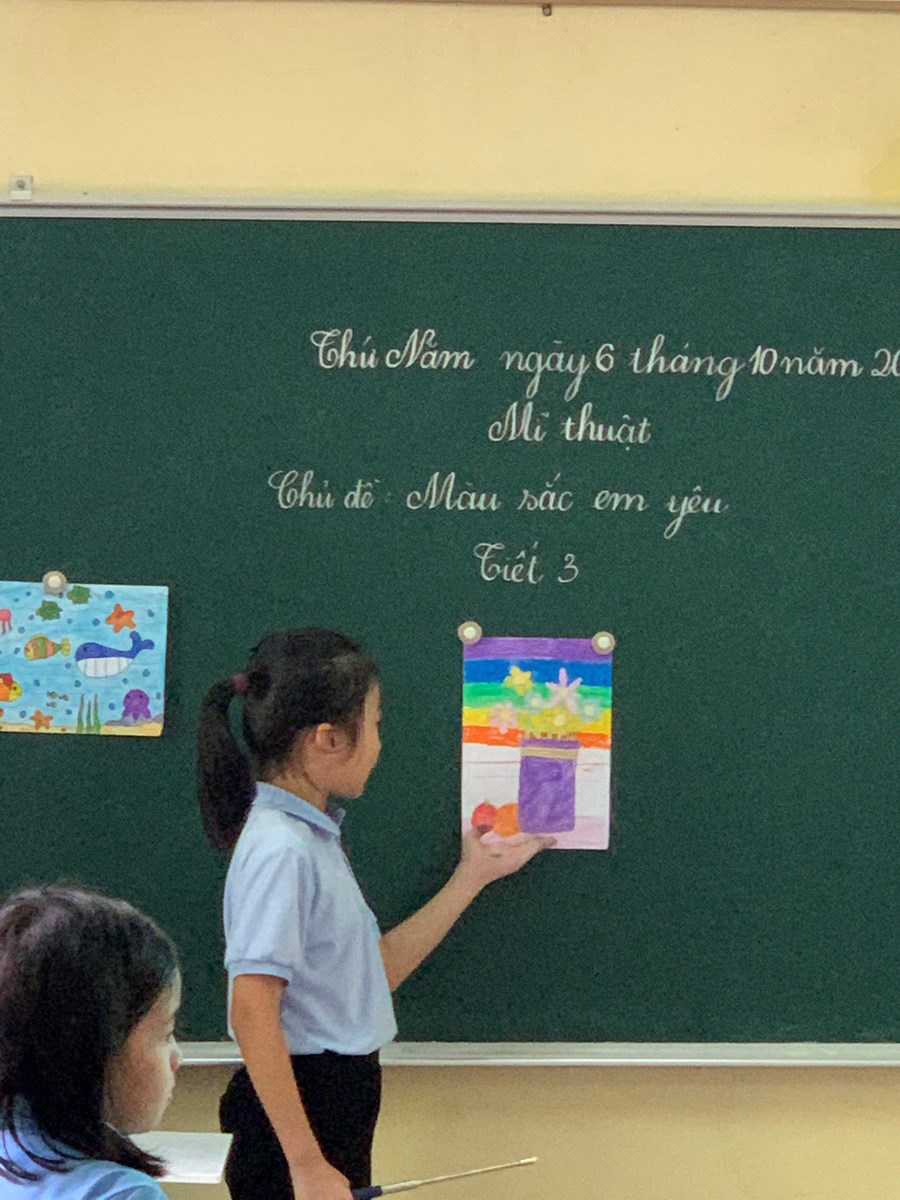 Thứ Năm ngày 6 tháng 10 năm 20
Mĩ thuật
Chủ đề: Màu sắc em yêu
Tiết 3